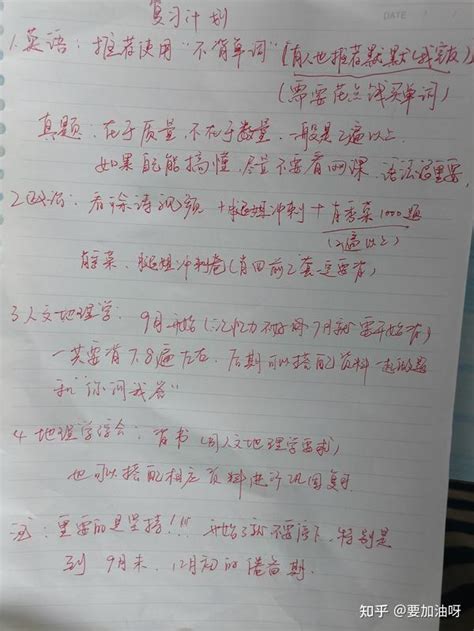 复习计划
DATE
1.英语：推荐使用“不简单词”(有人也推荐默默(我穷友)
(需要花点钱买单词)
真题：在于质量，不在于数量，一般是2遍以上
如果自己能搞懂，尽量不要看网课，语法很重要
2.政治：看徐涛视频+腿姐冲刺+肖秀荣1000题
(2遍以上)
肖秀荣、腿姐冲刺卷(肖四前2套一定要背)
3人文地理学：9月开始(记忆力不好的7月就要开始背)
一共要背7.8遍左右，后期可以搭配资料一起做题
和“你问我答”
4地理学综合：背书(同人文地理学要求)
也可以搭配相应资料进行巩固复习
注：重要的是坚持!!! 开始了就不要停下，特别是
到9月末，12月初的疲惫期.
知乎 @要加油呀